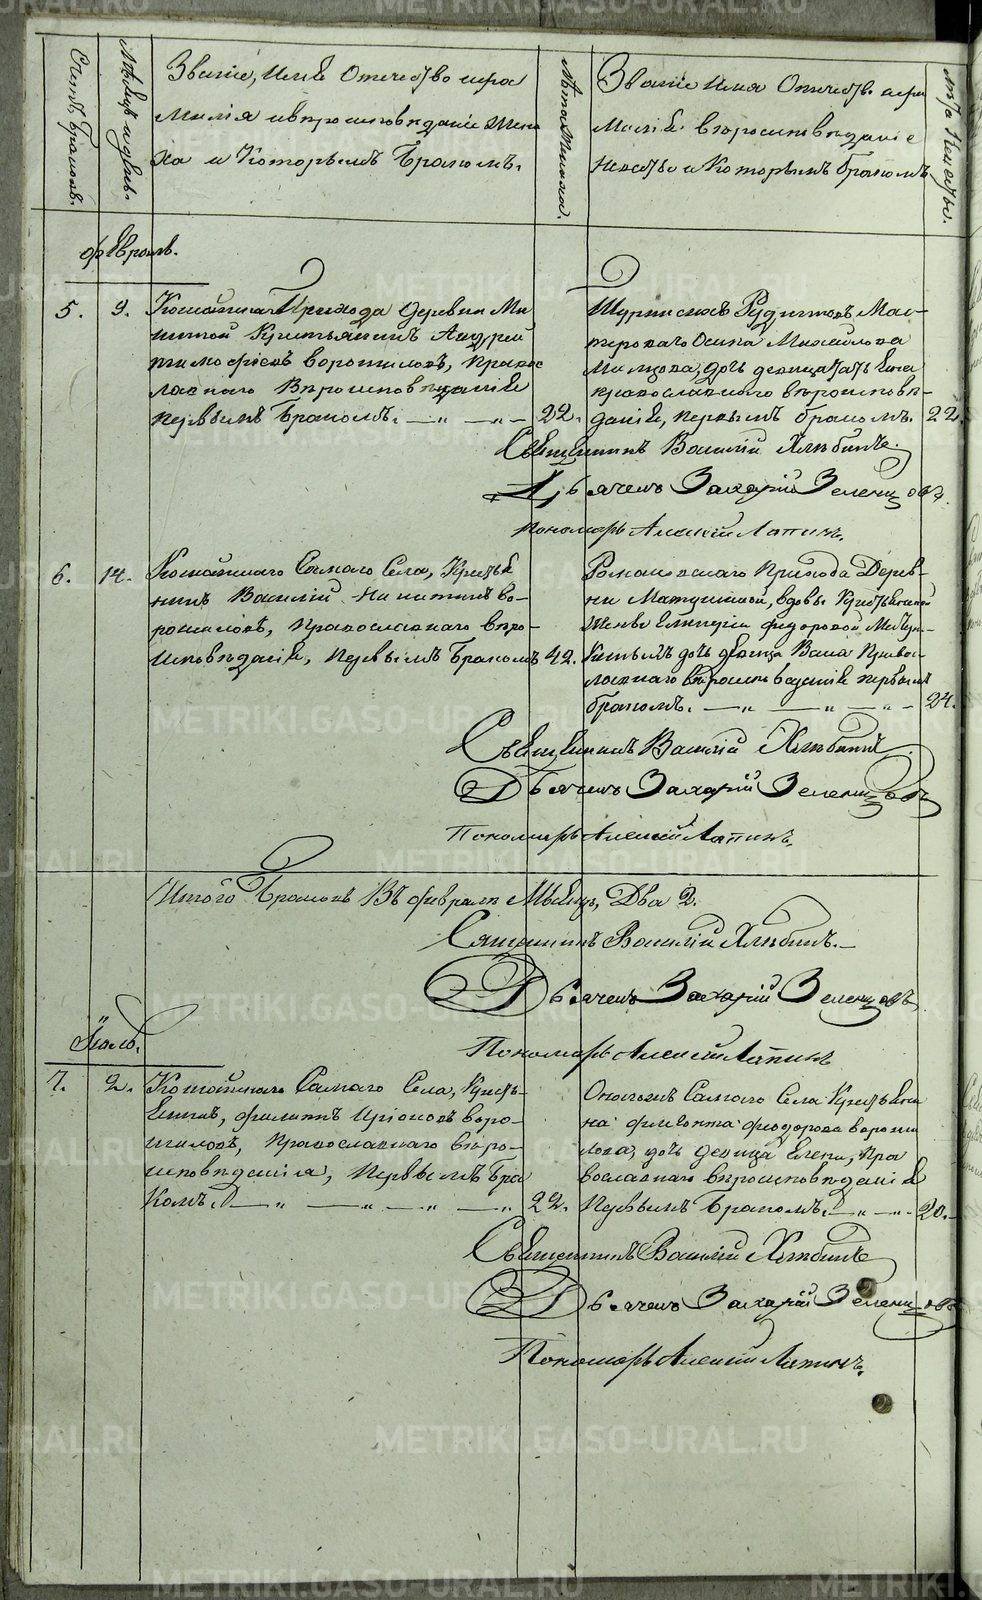 METRIKI.GASO-URAL.RU
Счетъ браковъ.
Мѣсяцъ и день.
Званіе, имя Отечество и фа
милія и вѣроисповѣданіе Жени
ха и Которымъ Бракомъ.
Лѣта Жениха.
Званіе Имя Отечество и фа
милія вѣроисповѣданіе
Невѣсты и Которымъ бракомъ
Лѣта Невѣсты.
февраль.
5.
9.
Прихода деревни
Крестьянинъ Андрей
Тимофѣевъ ворошиловъ, Правос
лавнаго Вѣроисповѣданія
первымъ Бракомъ.
22.
Рудниковъ Мас-
тероваго Осипа Михайлова
дочь девица
православнаго вѣроисповѣ-
данія, первымъ бракомъ.
22.
Священникъ Василій Хлѣбинъ.
Дьячекъ Захарій Зеленцовъ.
Пономарь Алексій Лапинъ.
6.
14.
Самаго Села, Кресья
нинъ Василій Никитинъ во-
рошиловъ, Православнаго вѣро-
исповѣданія, первымъ Бракомъ
42.
Романовскаго Прихода Дерев-
ни вдовы Крестьянской
Женки Федоровой
дочь девица Васса Правос-
лавнаго вѣроисповѣданія первымъ
бракомъ.
24.
Священникъ Василій Хлѣбинъ
Дьячекъ Захарій Зеленцовъ
Пономарь Алексій Лапинъ.
Итого Браковъ Въ февралѣ Мѣсяцѣ, Два 2.
Священникъ Василій Хлѣбинъ.
Дьячекъ Захарій Зеленцовъ,
Пономарь Алексій Лапинъ
7.
2.
Самаго Села, Кресть-
янинъ, филиппъ воро-
шиловъ, Православнаго вѣро-
исповѣданія, Первымъ Бра
комъ.
22.
Онагожъ Самаго Села Крестьяни
на феодорова вороши
лова, дочь девица Елена, Пра
вославнаго вѣроисповѣданія
Первымъ Бракомъ.
20.
Священникъ Василій Хлѣбинъ
Дьячекъ Захарій Зеленцовъ
Пономарь Алексій Лапинъ.